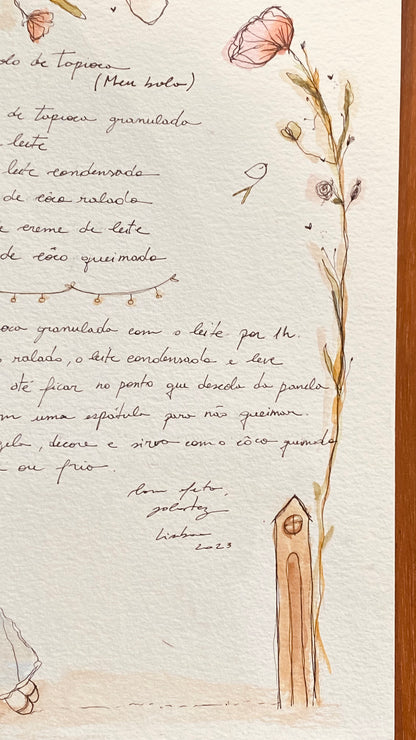 olo de Tapioca
(Meu bolo)
de tapioca granulada
leite
leite condensado
de côco ralado
e creme de leite
de côco queimado
oca granulada com o leite por 1h.
ralado, o leite condensado e leve
até ficar no ponto que descola da panela
m uma espátula para não queimar.
gela, decore e sirva com o côco queimado
ou frio.
Com afeto,
Lisboa
2023